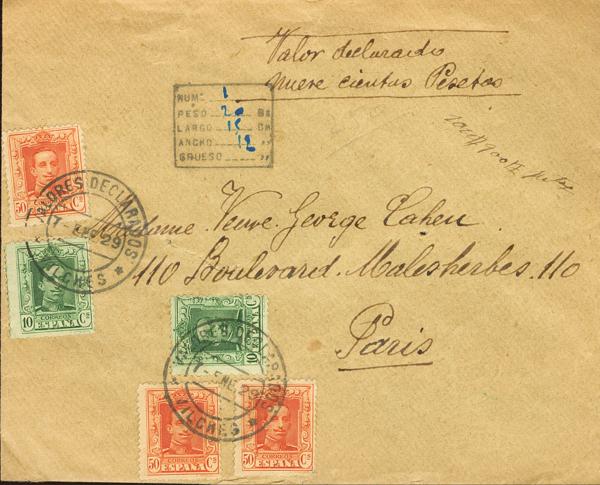 Valor declarado
nueve cientas Pesetas
NUMº 1
PESO 20 Gs
LARGO 15 CM
ANCHO 12 "
GRUESO "
50 Cs
VALORES DECLARADOS
29
VILCHES
Madame Veuve George Cahen
110 Boulevard Malesherbes 110
Paris
CORREOS
10 ESPAÑA Cs
10 ESPAÑA Cs
VALORES DECLARADOS
ENE 29
VILCHES
CORREOS
50 ESPAÑA Cs
CORREOS
50 ESPAÑA Cs